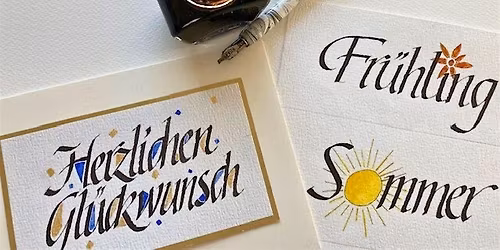 Herzlichen
Glückwunsch
Frühling
Sommer